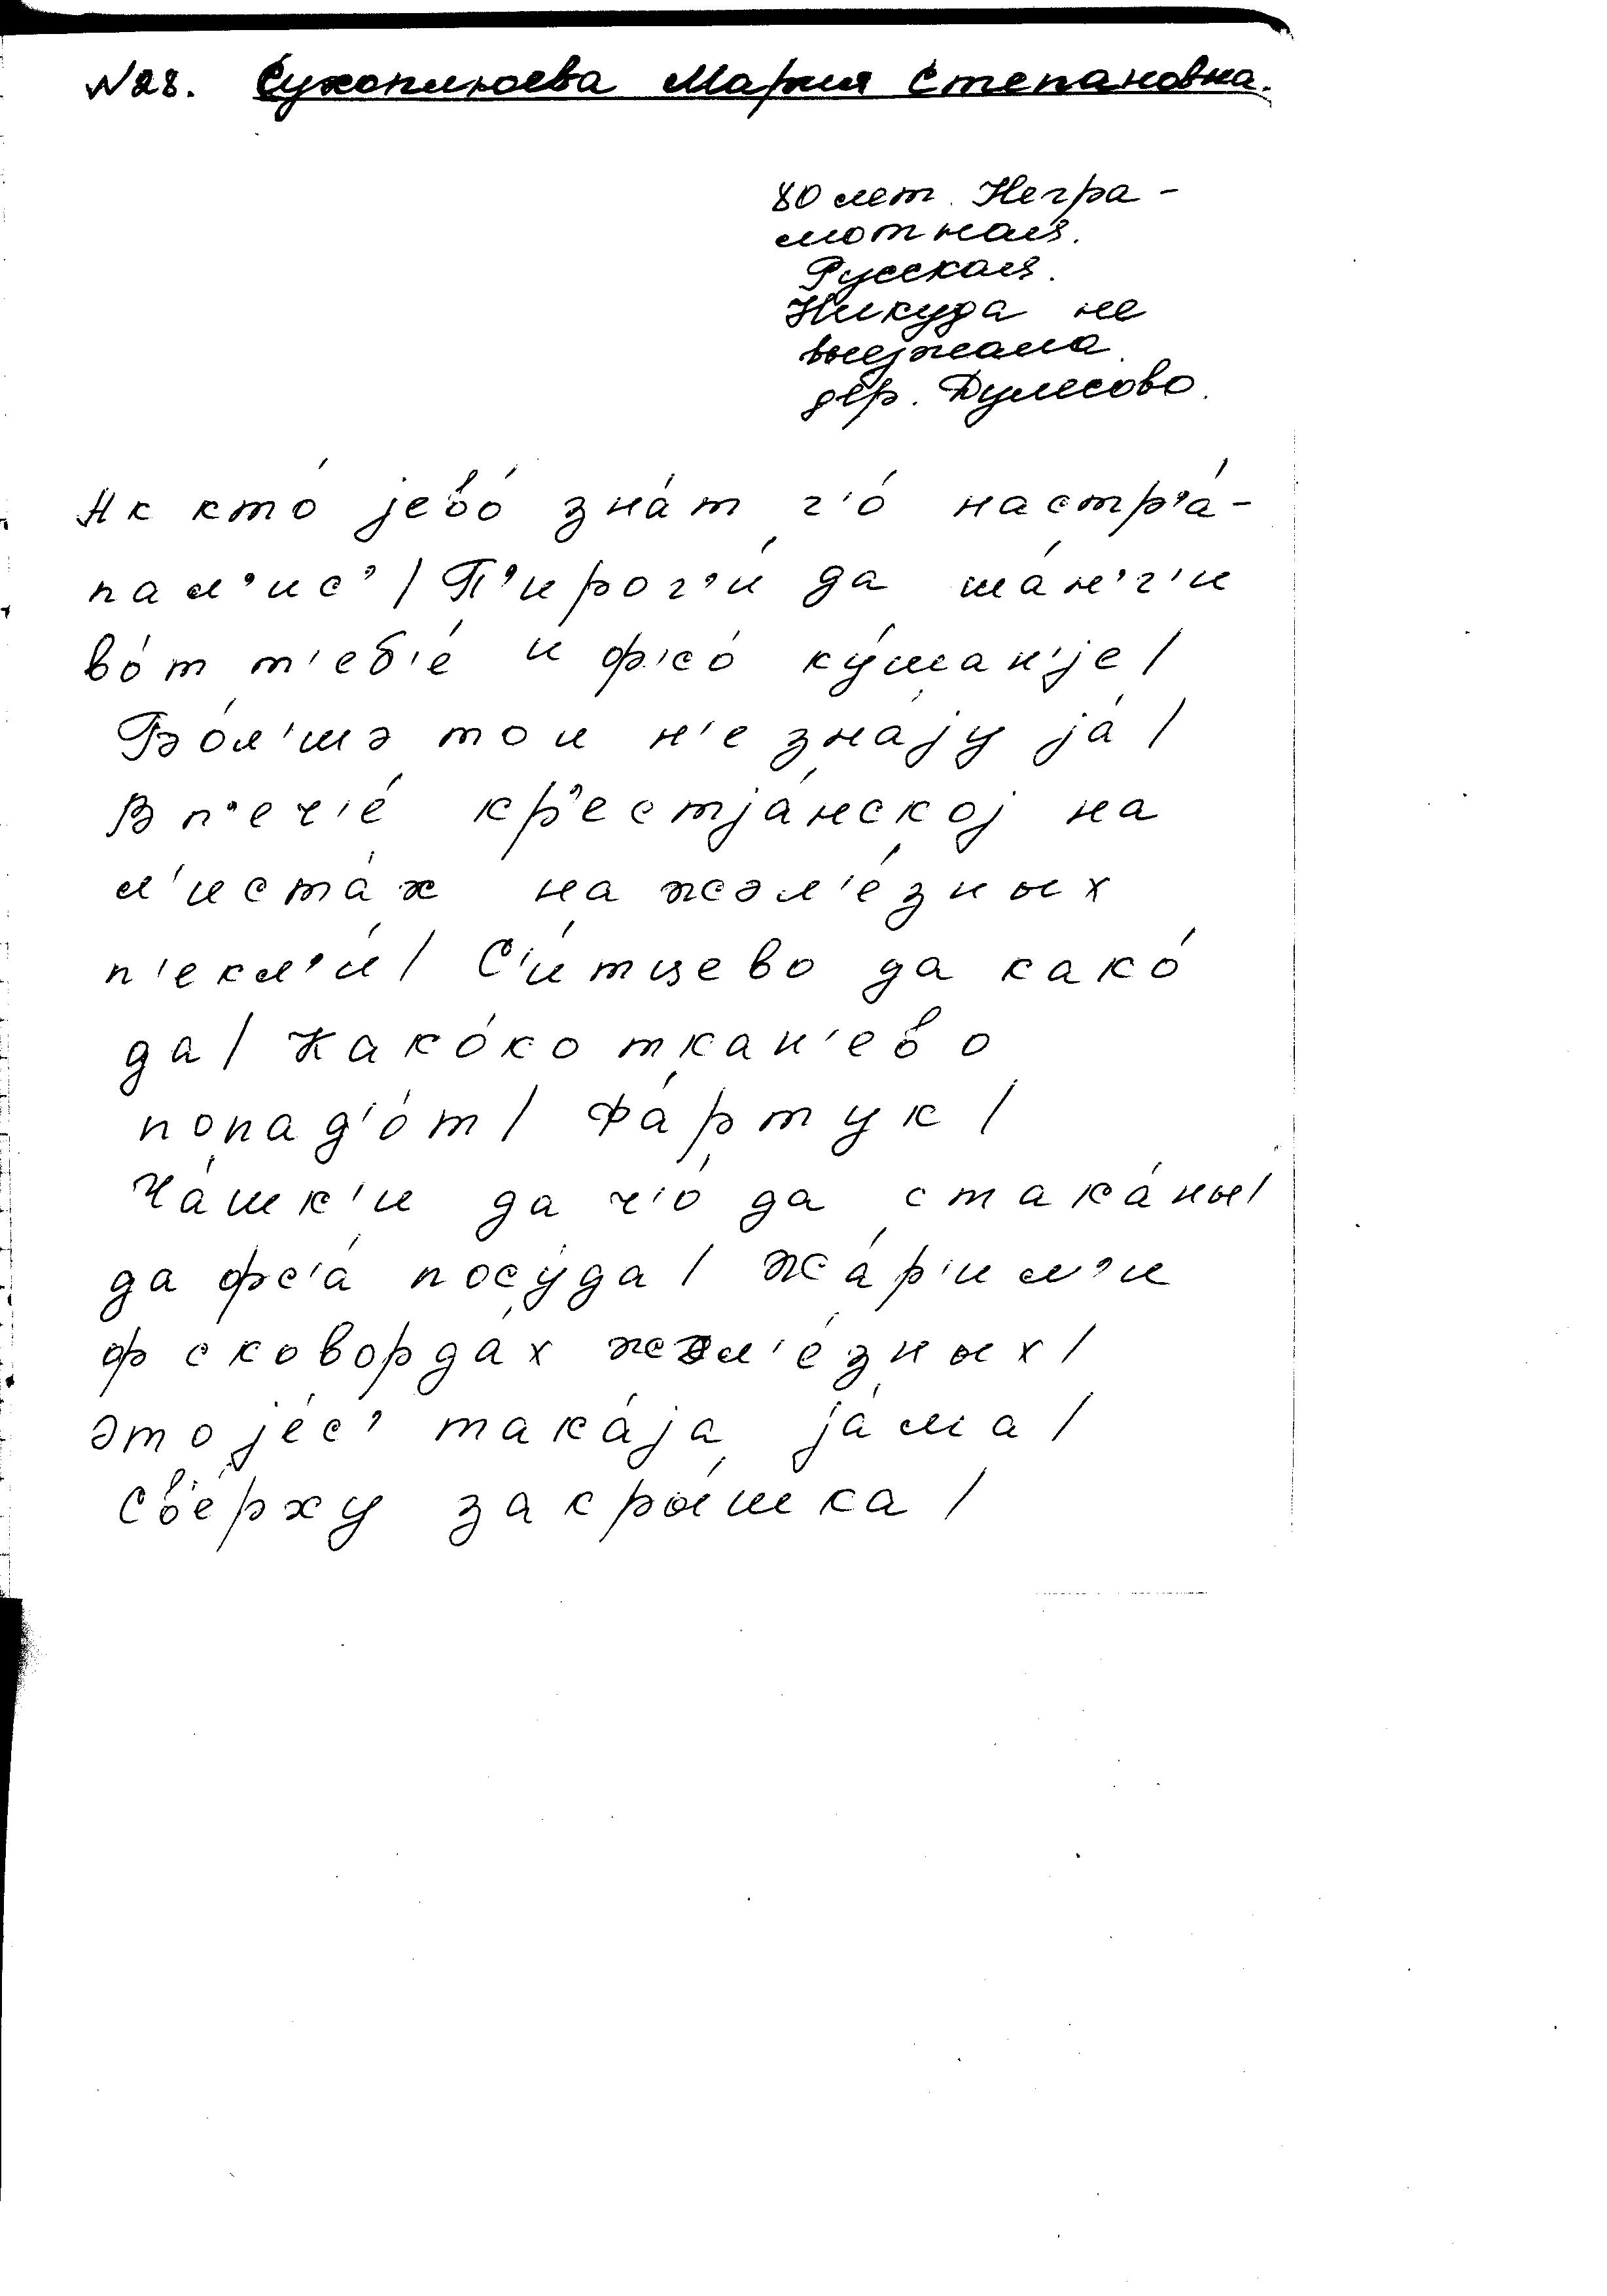 N28. Сухоплюева Мария Степановна.
80 лет. Негра-
мотная.
Русская.
Никуда не
выезжала
дер. Дулесово.
Ак кто́ jево́ зна́т ч'о́ настр'а́-
пал'ис' / П'ирог'и́ да ша́н'г'и
во́т т'еб'е́ и фс'о́ ку́шан'jе /
Бо́л'шэ то и н'е зна́jу jа́ /
В п'еч'е́ кр'естjа́нскоj на
л'иста́х на жэл'е́зных
п'екл'и́ / С'и́тцево да како́
да / Како́ко ткан'ево
попад'о́т / Фа́ртук /
Ча́шк'и да ч'о́ да стака́ны /
да фс'а́ посу́да / Жа́р'ил'и
ф сковорда́х жэл'е́зных /
Это jе́с' така́jа jа́ма /
Св'е́рху закры́шка /